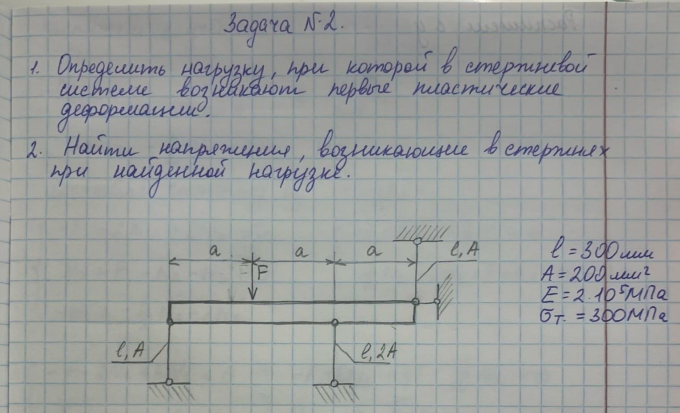 Задача N:2.
1. Определить нагрузку, при которой в стержневой
системе возникают первые пластические
деформации.
2. Найти напряжения, возникающие в стержнях
при найденной нагрузке.
a a a
F
l, A
l, A
l, 2A
l = 300 мм
A = 200 мм²
E = 2·10⁵ МПа
σт. = 300 МПа